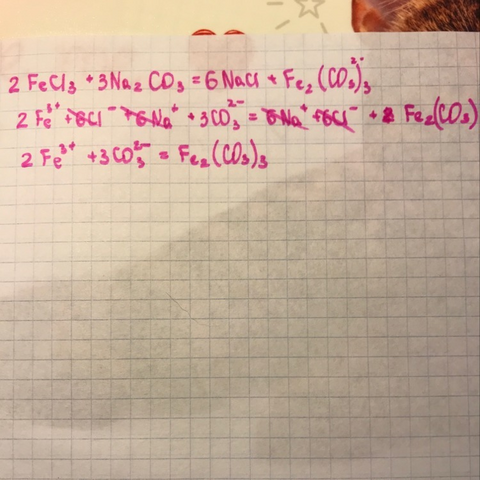 2 FeCl₃ + 3Na₂CO₃ = 6NaCl + Fe₂(CO₃)²⁻₃
2 Fe³⁺ + 6Cl⁻ + 6Na⁺ + 3CO₃²⁻ = 6Na⁺ + 6Cl⁻ + Fe₂(CO₃)
2 Fe³⁺ + 3CO₃²⁻ = Fe₂(CO₃)₃